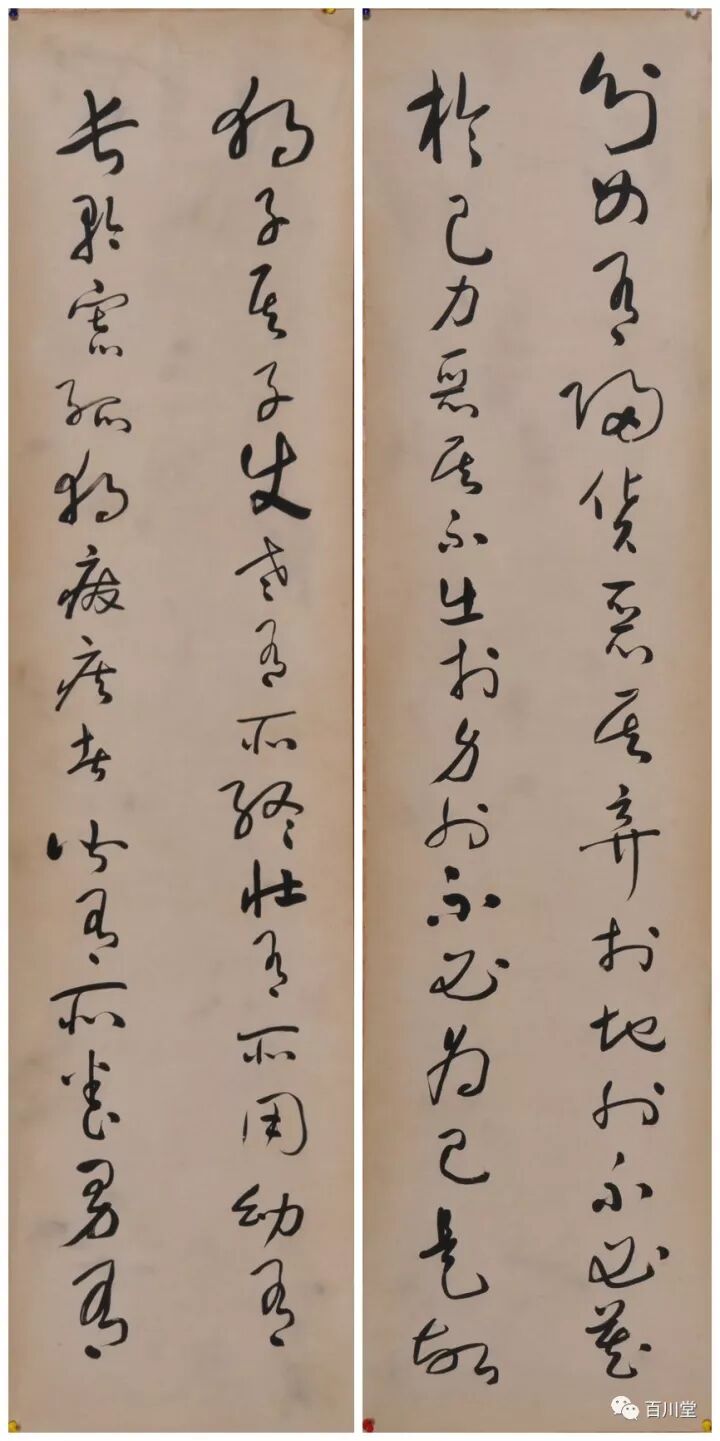 獨子其子使老有所終壯有所用幼有
長矜寡孤獨廢疾者皆有所養男有
分女有歸貨惡其棄於地也不必藏
於己力惡其不出於身也不必為己是故
百川堂